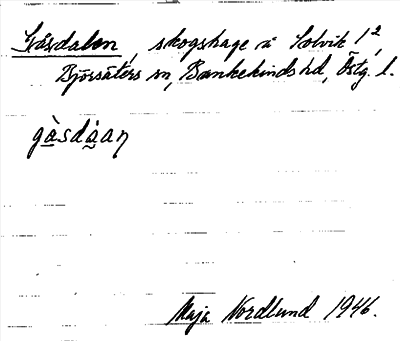 Gåsdalen, skogshage å Solvik 1²,
Björsäters sn, Bankekinds hd, Östg. l.
gàsdàan
Maja Nordlund 1946.